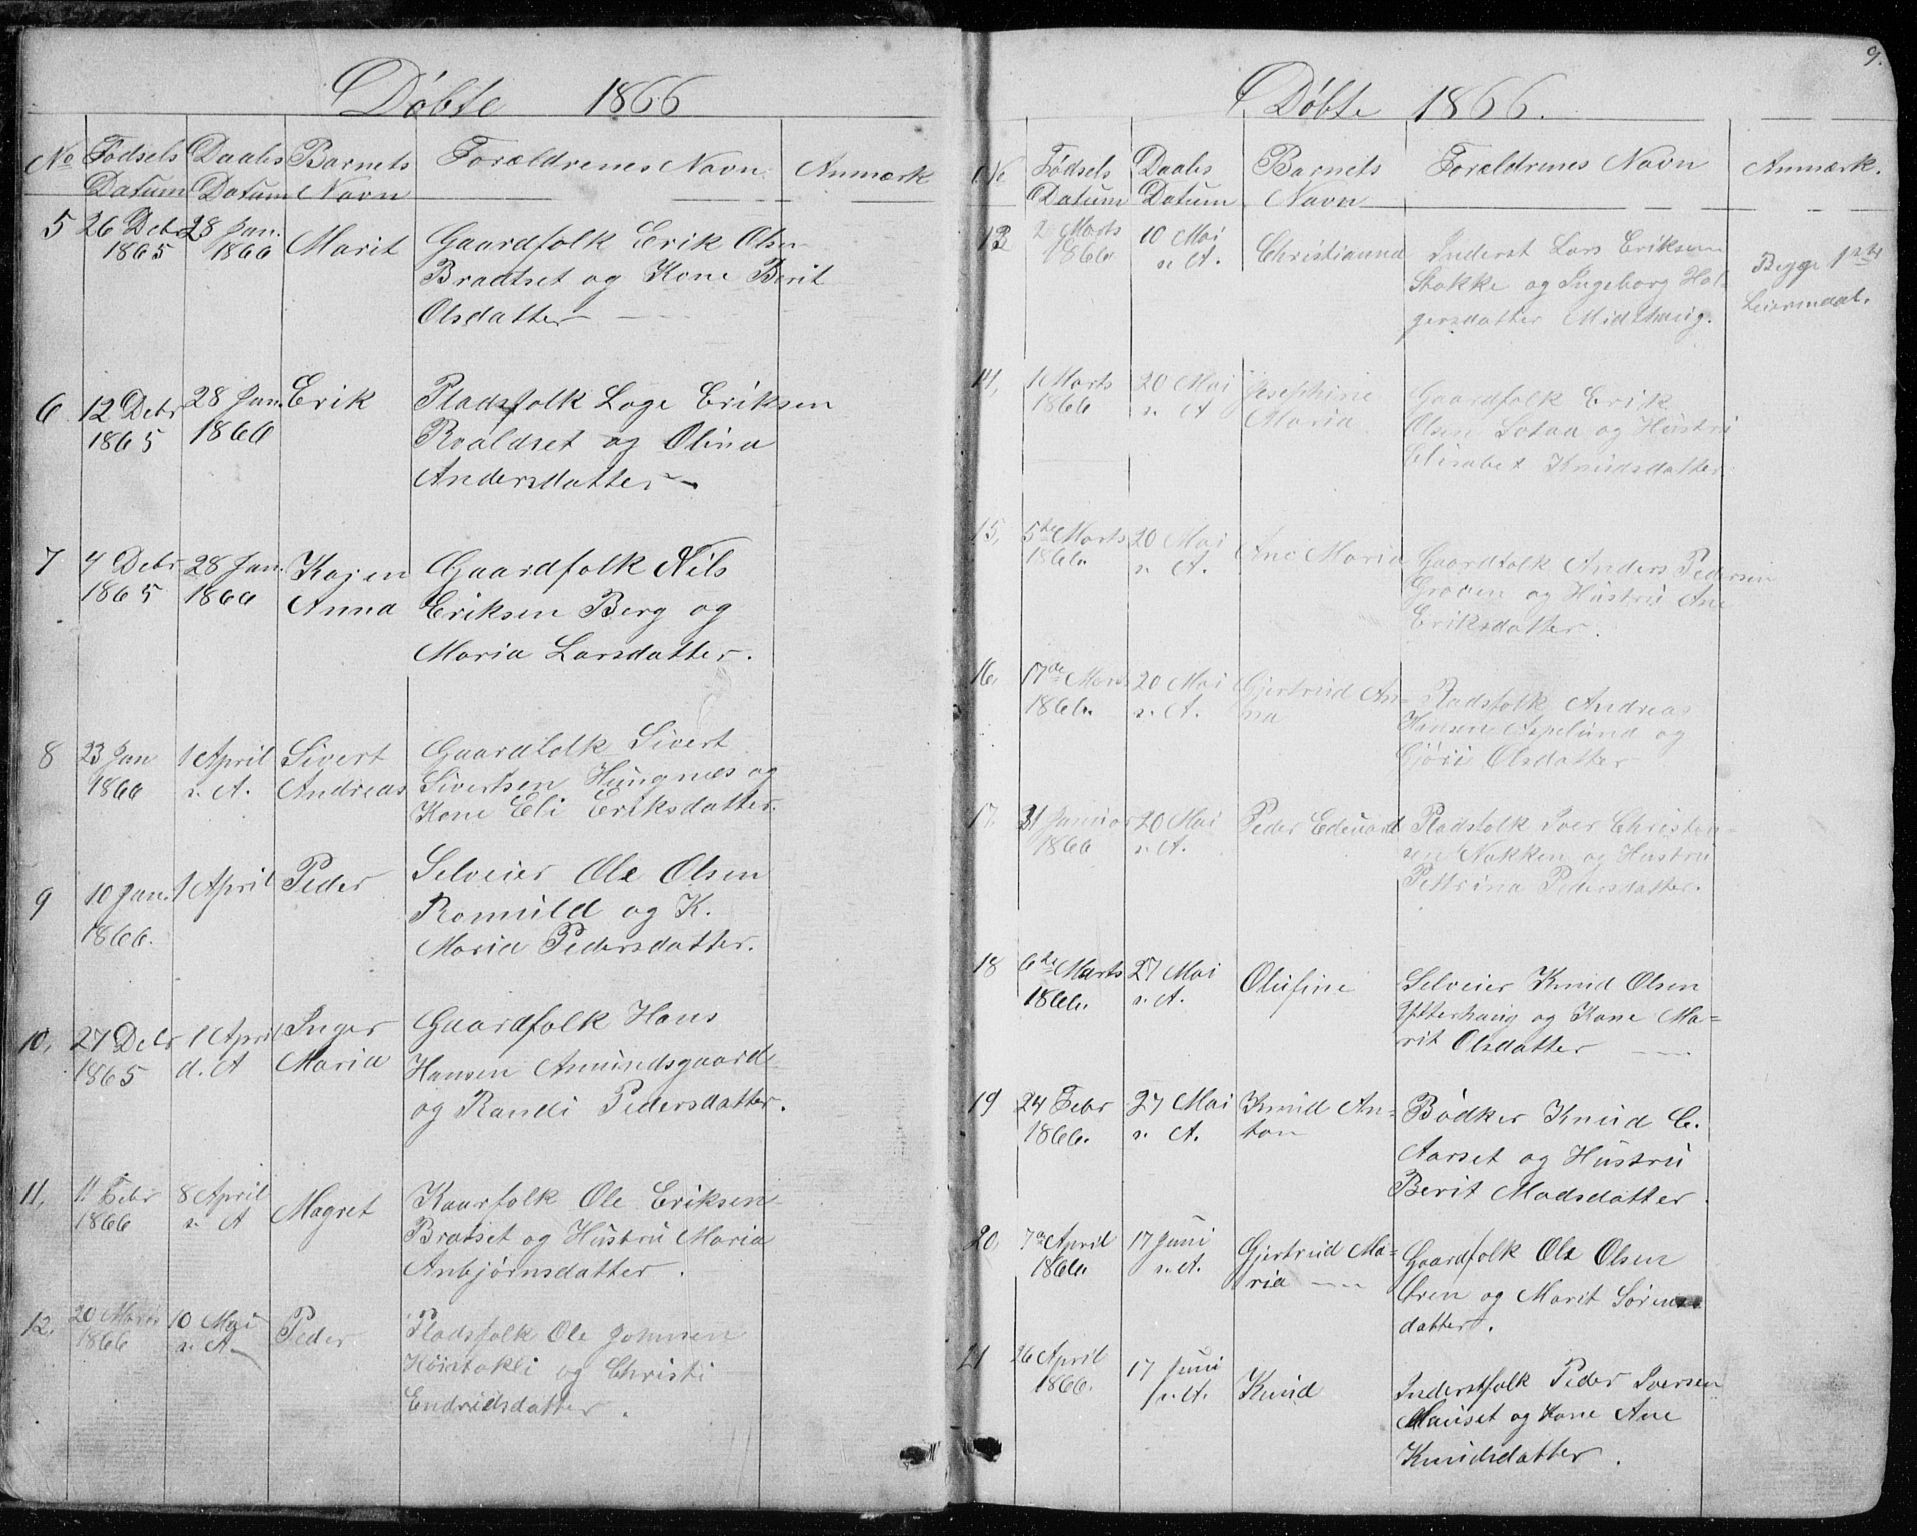 Døbte 1866
No Fødsels Datum Daabs Datum Barnets Navn Forældrenes Navn Anmærk
5 26 Debr 1865 28 Jan. 1866 Marit Gaardfolk Erik Olsen
Bradtset og Kone Berit
Olsdatter
6 12 Debr 1865 28 Jan. 1866 Erik Pladsfolk Lage Eriksen
Roaldset og Olina
Andersdatter
7 4 Debr 1865 28 Jan. 1866 Kajen Anna Gaardfolk Nils
Eriksen Berg og
Maria Larsdatter.
8 23 Jan 1866 1 April s. A. Sivert Andreas Gaardfolk Sivert
Sivertsen Hungnæs og
Kone Eli Eriksdatter.
9 10 Jan. 1866. 1 April Peder Selveier Ole Olsen
Romuld og K.
Maria Pedersdatter.
10, 27 Debr 1865 1 April d. A Inger Maria Gaardfolk Hans
Hansen Amundsgaard
og Randi Pedersdatter.
11, 11 Febr 1866 8 April s. A Magret Kaarfolk Ole Eriksen
Bratset og Hustru Maria
Anbjørnsdatter.
12. 20 Marts 1866 10 Mai s. A. Peder Pladsfolk Ole Johnsen
og Christi
Endridsdatter.
9.
Døbte 1866.
No Fødsels Datum Daabs Datum Barnets Navn Forældrenes Navn Anmærk.
13 2 Marts 1866 10 Mai s. A. Christianna Inderst Lars Eriksen
Stokke og Ingeborg Hol-
gersdatter Midthaug. Begge 1ste
Leiermaal.
14, 1 Marts 1866 20 Mai s. A Josephine Maria Gaardfolk Erik
Olsen og Hustru
Elisabet Knudsdatter
15, 5te Marts 1866. 20 Mai s. A. Ane Maria Gaardfolk Anders Pedersen
Groven og Hustru Ane
Eriksdatter.
16. 17de Marts 1866. 20 Mai s. A. Gjertrud An-
na Pladsfolk Andreas
Hansen Aspelund og
Gjøri Olsdatter
17. 31 Januar 1866 20 Mai s. A. Peder Edevard Pladsfolk Iver Christen-
sen Nakken og Hustru
Pettrina Pedersdatter.
18 6te Marts 1866. 27 Mai s. A. Olufine Selveier Knud Olsen
Ytterhaug og Kone Ma=
rit Olsdatter
19 24 Febr 1866. 27 Mai s. A. Knud An=
ton Bødker Knud C.
Aarset og Hustru
Berit Madsdatter.
20, 7de April 1866. 17 Juni s. A. Gjertrud Ma=
ria Gaardfolk Ole Olsen
Øren og Marit Sørens
datter.
21 26 April 1866. 17 Juni s. A. Knud Inderstfolk Peder Iversen
Mauset og Kone Ane
Knudsdatter.